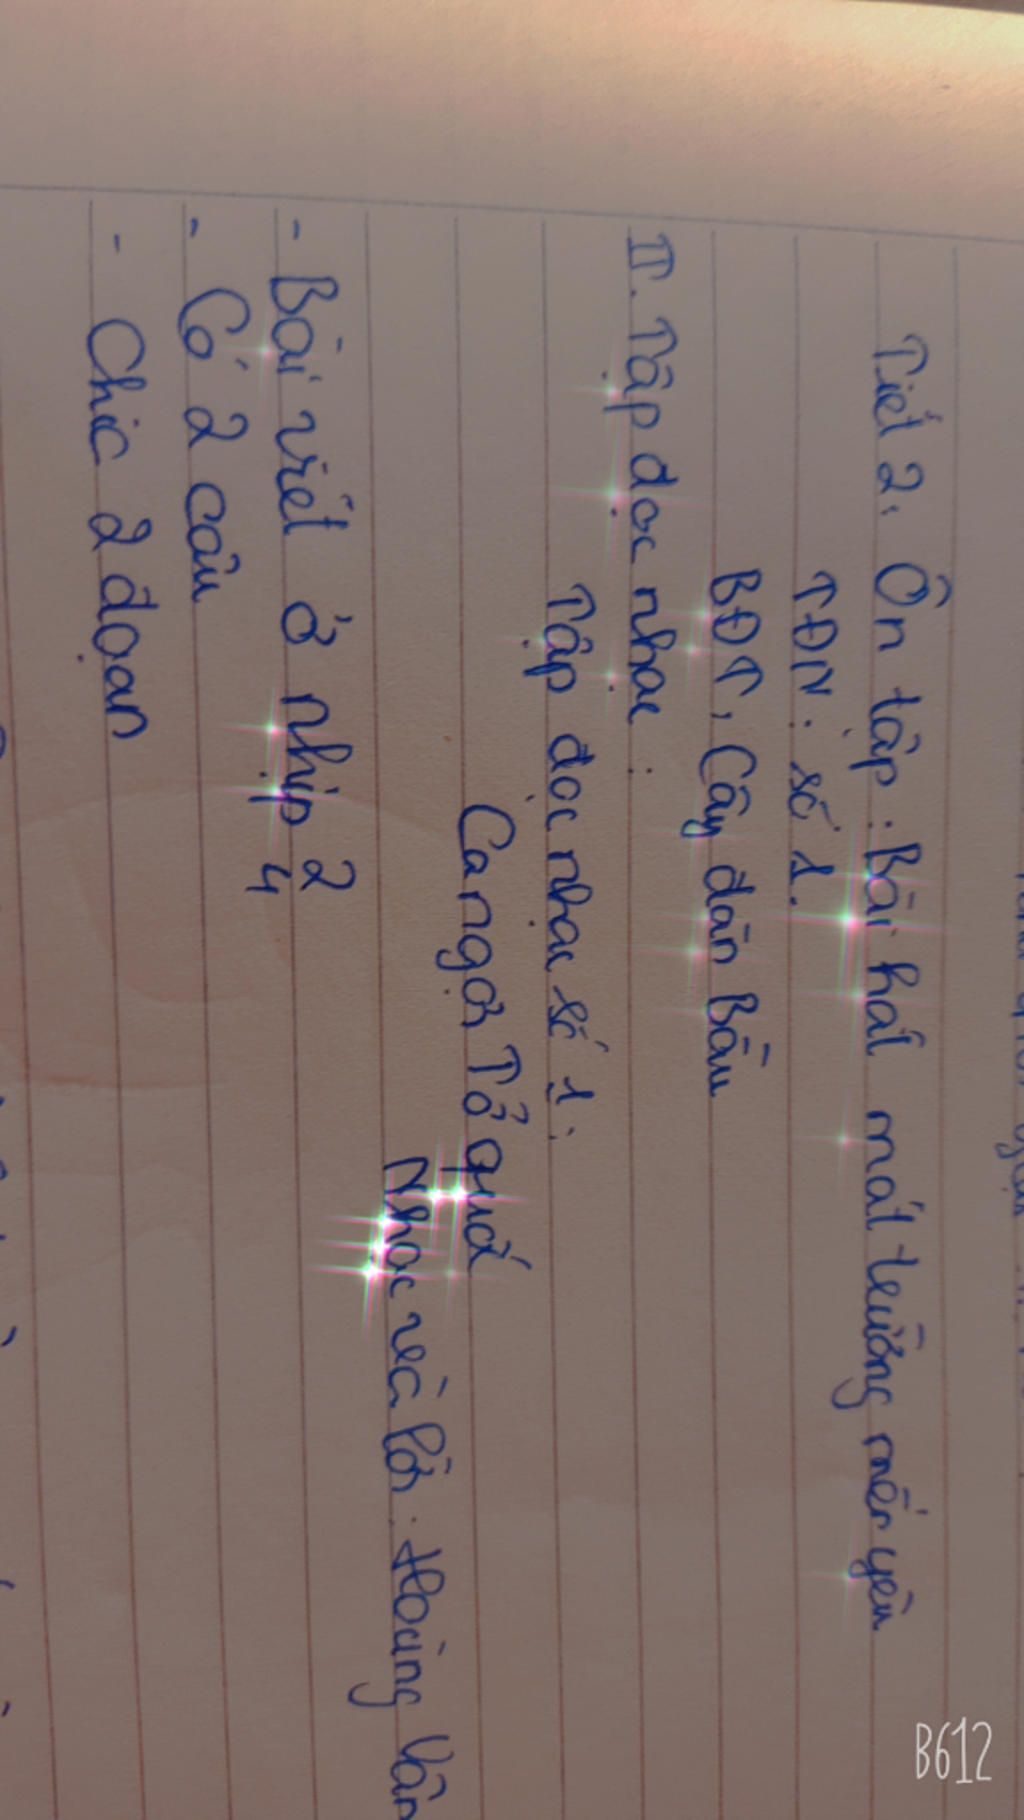 Tiết 2: Ôn tập: Bài hát mái trường mến yêu
TĐN: số 1.
BĐT, Cây đàn Bầu
II. Tập đọc nhạc:
Tập đọc nhạc số 1:
Ca ngợi Tổ quố
Nhạc và lời: Hoàng Vân
- Bài viết ở nhịp 2
4
- Có 2 câu
- Chic 2 đoạn
B612